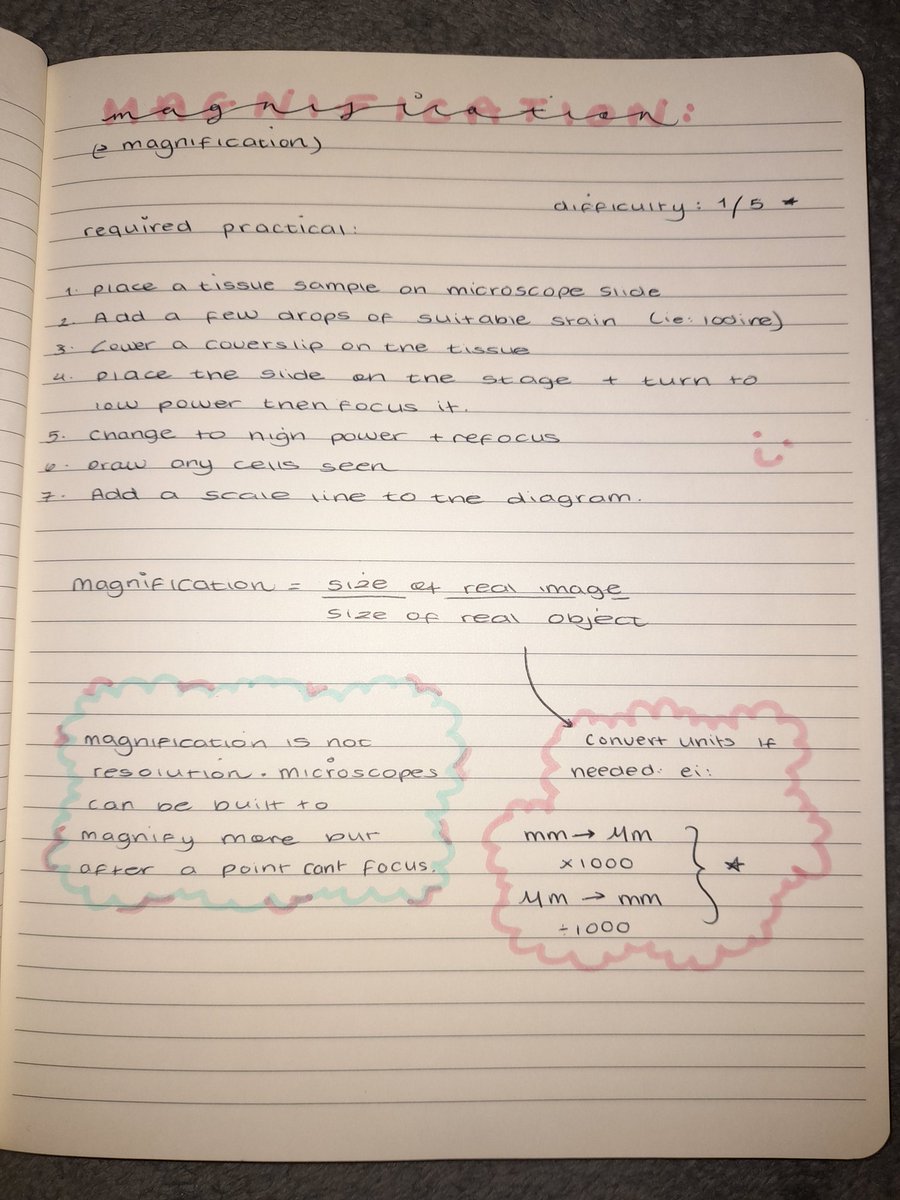 MAGNIFICATION:
magnification
(> magnification)
difficulty: 1/5 ★
required practical:
1. place a tissue sample on microscope slide
2. Add a few drops of suitable stain (ie: iodine)
3. Lower a coverslip on the tissue
4. place the slide on the stage + turn to
low power then focus it.
5. change to high power + refocus
6. Draw any cells seen
7. Add a scale line to the diagram.
magnification = size of real image
size of real object
magnification is not
resolution. microscopes
can be built to
magnify more but
after a point cant focus.
convert units if
needed: ei:
mm → μm
×1000
μm → mm
÷1000
★